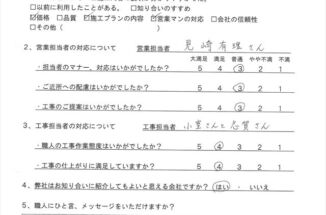 □以前に利用したことがある。 □知り合いのすすめ
☑価格 □品質 ☑施工プランの内容 ☑営業マンの対応 □会社の信頼性
□その他( )
2、営業担当者の対応について 営業担当者 尾崎有理さん
大満足 満足 普通 やや不満 不満
・担当者のマナー、対応はいかがでしたか? 5 4 ③ 2 1
・ご近所への配慮はいかがでしたか? 5 4 ③ 2 1
・工事のご提案はいかがでしたか? 5 4 ③ 2 1
3、工事担当者の対応について 工事担当者 小室さんと志賀さん
・職人の工事作業態度はいかがでしたか? 5 ④ 3 2 1
・工事の仕上がりに満足していますか? 5 ④ 3 2 1
4、弊社はお知り合いに紹介してもよいと思える会社ですか? はい ・ いいえ
5、職人にひと言、メッセージをいただけますか?